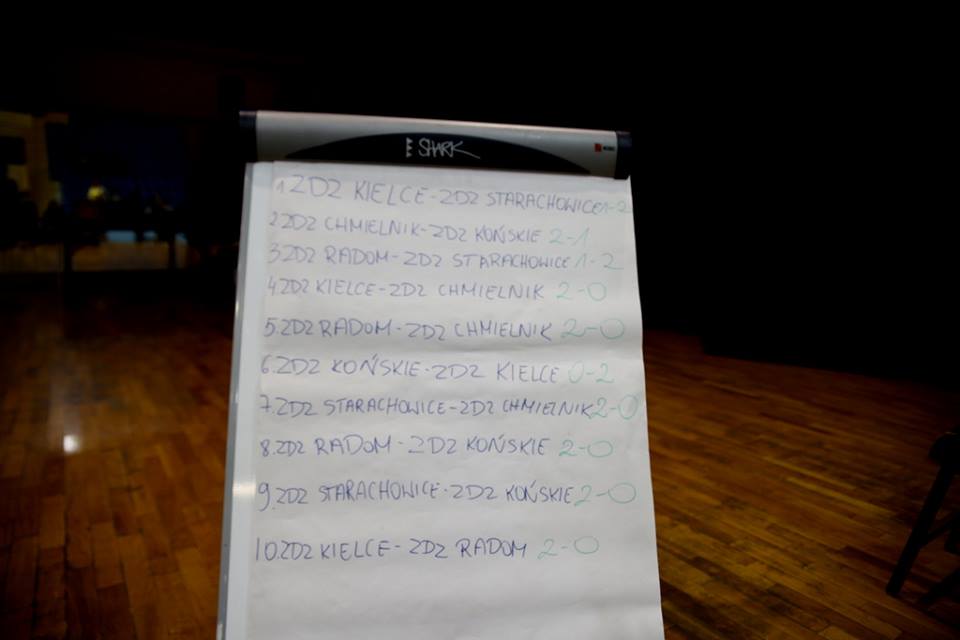 SHARK
1.ZDZ KIELCE-ZDZ STARACHOWICE 1-2
2.ZDZ CHMIELNIK-ZDZ KOŃSKIE 2-1
3.ZDZ RADOM-ZDZ STARACHOWICE 1-2
4.ZDZ KIELCE-ZDZ CHMIELNIK 2-0
5.ZDZ RADOM-ZDZ CHMIELNIK 2-0
6.ZDZ KOŃSKIE-ZDZ KIELCE 0-2
7.ZDZ STARACHOWICE-ZDZ CHMIELNIK 2-0
8.ZDZ RADOM-ZDZ KOŃSKIE 2-0
9.ZDZ STARACHOWICE-ZDZ KOŃSKIE 2-0
10.ZDZ KIELCE-ZDZ RADOM 2-0